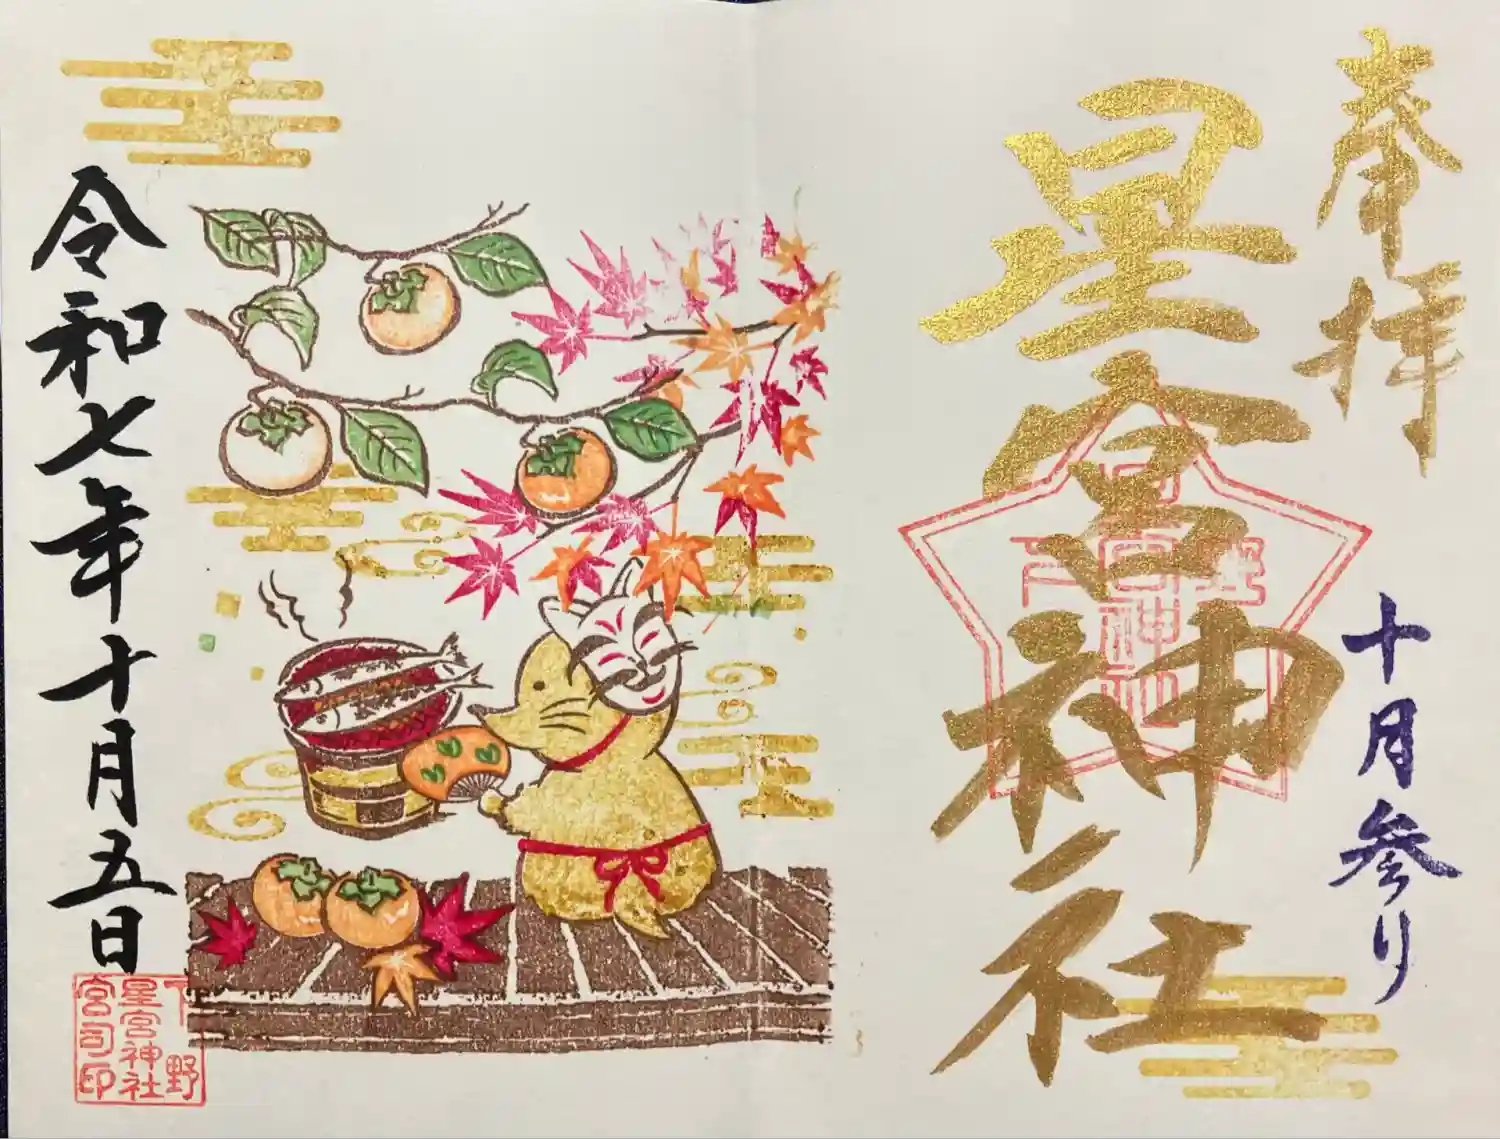 奉拝
星宮神社
十月参り
令和七年十月五日
下野
星宮神社
宮司印
下野
星宮神社